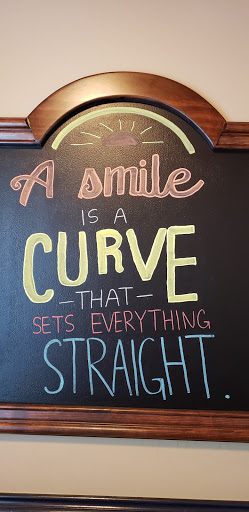 A smile
IS A
CURVE
- THAT -
SETS EVERYTHING
STRAIGHT.